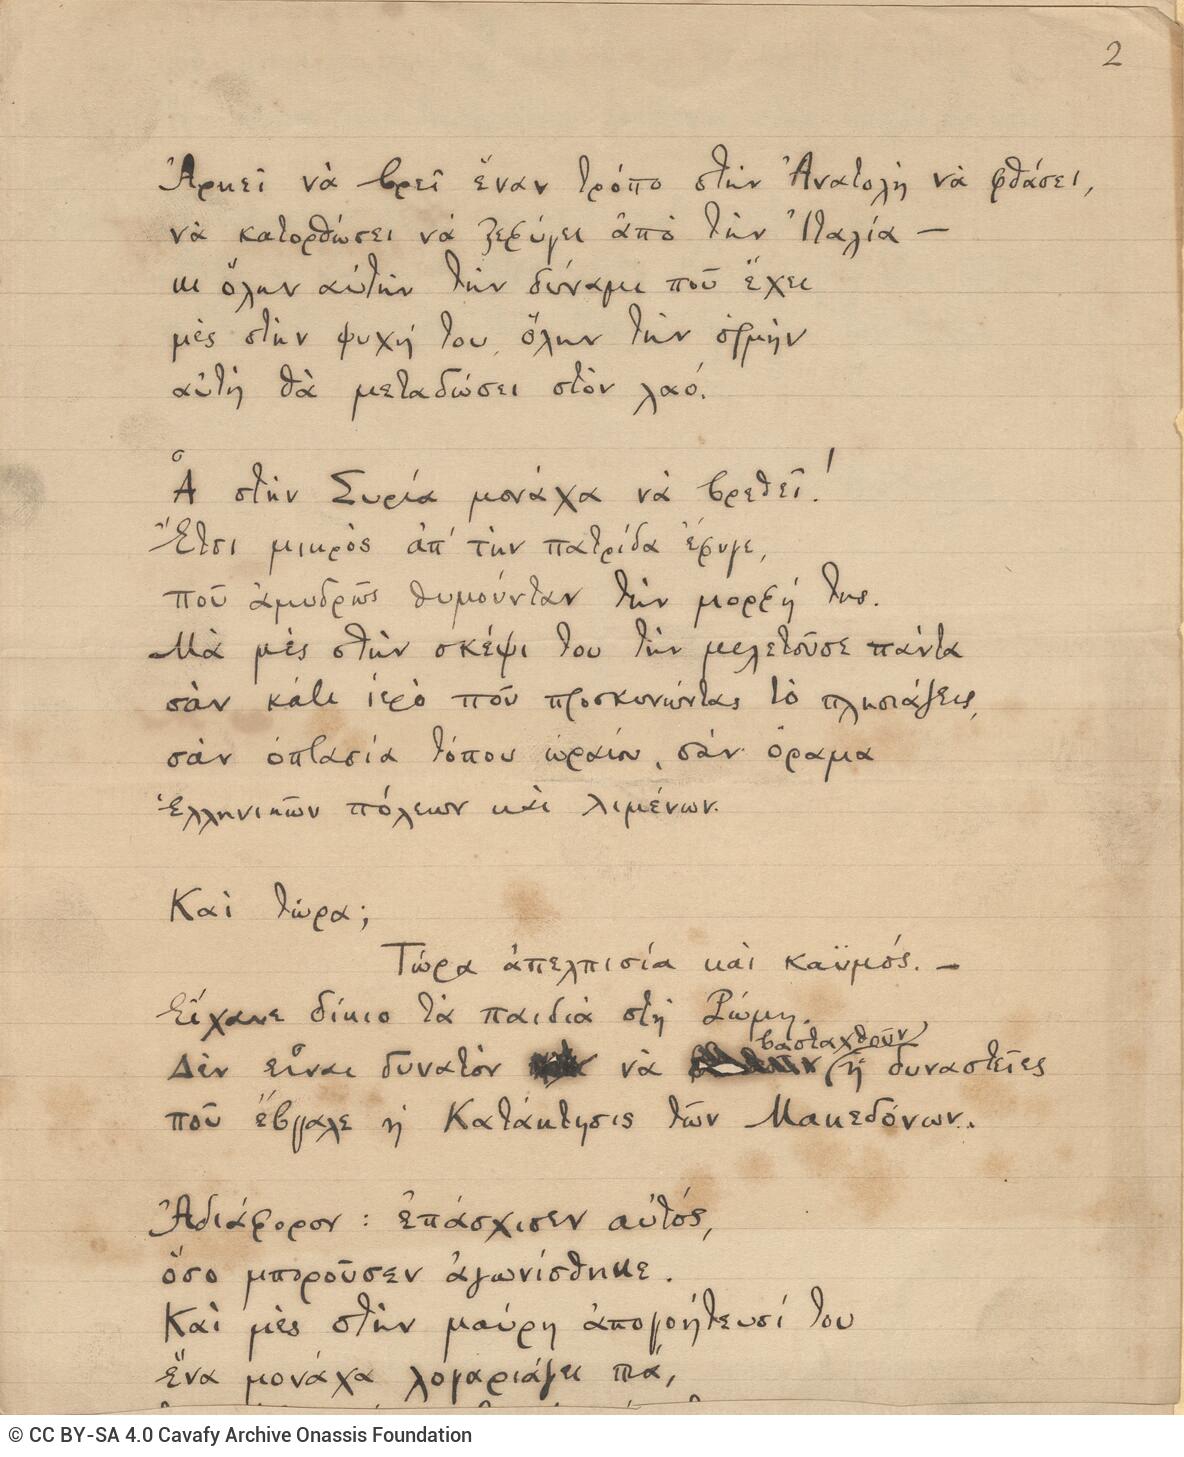 2
Ἀρκεῖ νὰ βρεῖ ἕναν τρόπο στὴν Ἀνατολὴ νὰ φθάσει,
νὰ κατορθώσει νὰ ξεφύγει ἀπὸ τὴν Ἰταλία —
κι ὅλην αὐτὴν τὴν δύναμι ποῦ ἔχει
μὲς στὴν ψυχή του, ὅλην τὴν ὁρμὴν
αὐτὴ θὰ μεταδώσει στὸν λαό.
Ἆ στὴν Συρία μονάχα νὰ βρεθεῖ!
Ἔτσι μικρὸς ἀπ' τὴν πατρίδα ἔφυγε,
ποῦ ἀμυδρῶς θυμούνταν τὴν μορφή της.
Μὰ μὲς στὴν σκέψι του τὴν μελετοῦσε πάντα
σὰν κάτι ἱερὸ ποῦ προσκυνώντας τὸ πλησιάζεις,
σὰν ὀπτασία τόπου ὡραίου, σὰν ὅραμα
ἑλληνικῶν πόλεων καὶ λιμένων.
Καὶ τώρα;
Τώρα ἀπελπισία καὶ καϋμός. —
Εἴχανε δίκιο τὰ παιδιὰ στὴ Ρώμη.
βασταχθοῦν
Δὲν εἶναι δυνατὸν νὰ ἡ δυναστεῖες
ποῦ ἔβγαλε ἡ Κατάκτησις τῶν Μακεδόνων.
Ἀδιάφορον: ἐπάσχισεν αὐτός,
ὅσο μποροῦσεν ἀγωνίσθηκε.
Καὶ μὲς στὴν μαύρη ἀπογοήτευσί του
ἕνα μονάχα λογαριάζει πιά,
© CC BY-SA 4.0 Cavafy Archive Onassis Foundation